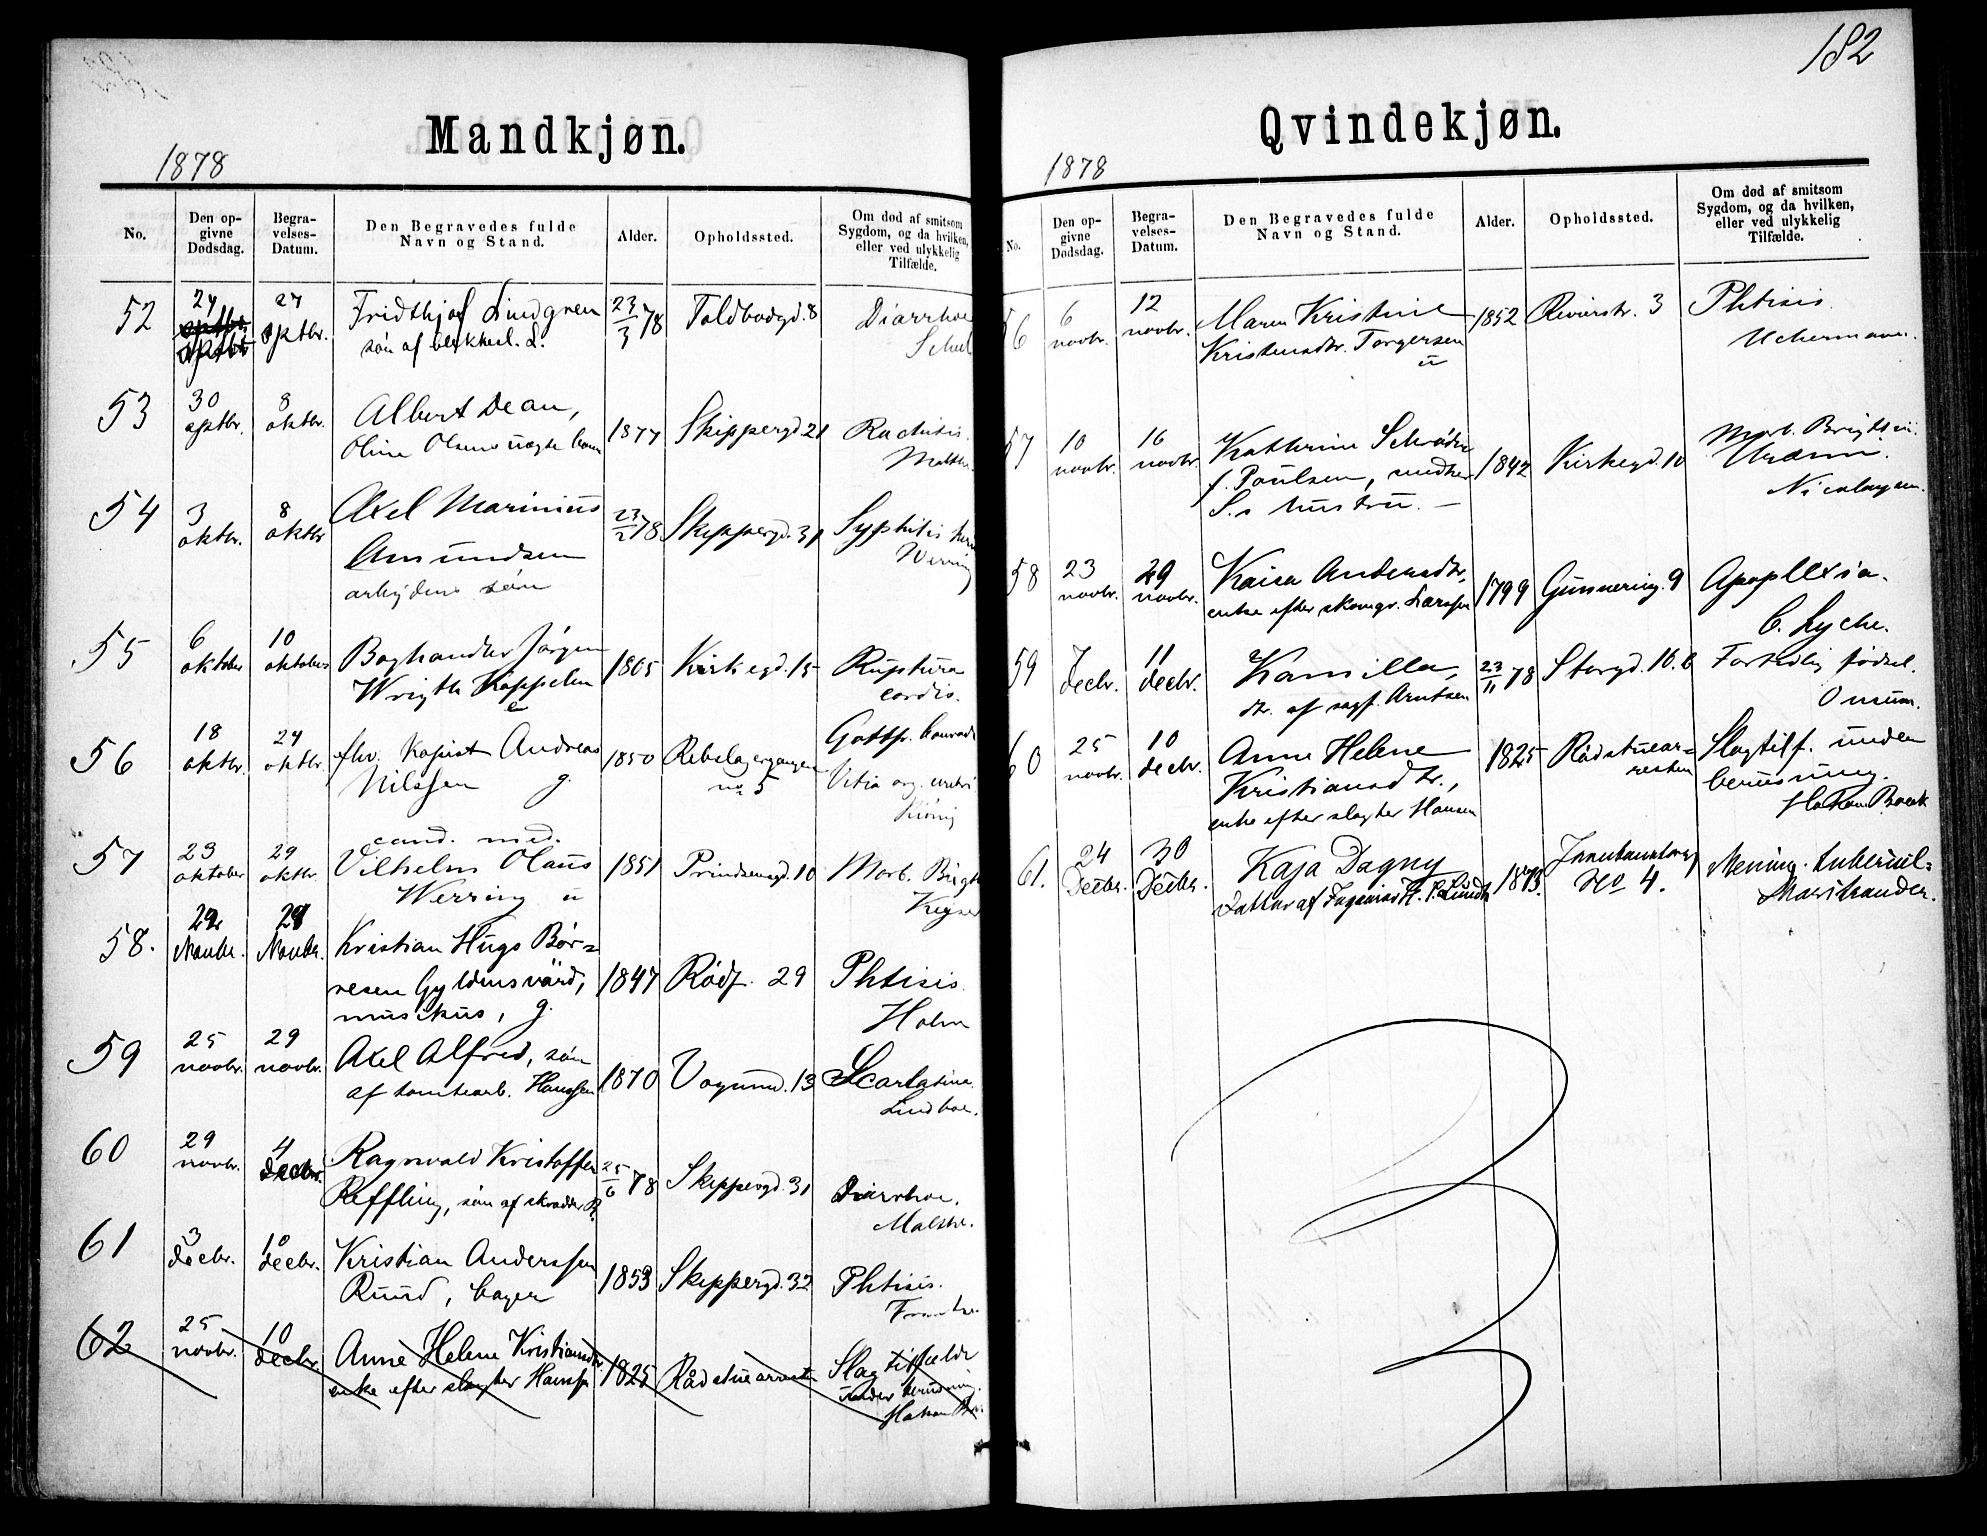 182
Mandkjøn.
1878
No.
Den opgivne Dødsdag.
Begravelses-Datum.
Den Begravedes fulde Navn og Stand.
Alder.
Opholdssted.
Om død af smitsom Sygdom, og da hvilken, eller ved ulykkelig Tilfælde.
52 24 septbr. 27 septbr. Fridthjof Lindgren 23/3 78 Toldbodgd. 8 Diarrhoe
søn af blikkensl. L.
53 30 septbr. 8 oktbr. Albert Dean, 1877 Skippergd 21 Rachitis.
Oline Olsens uægte barn Malthe
54 3 oktbr. 8 oktbr Axel Marinius 23/2 78 Skippergd. 31 Syphilis
Amundsen Werring
arbejders søn
55 6 oktober 10 oktober Boghandler Jørgen 1805 Kirkegd. 15 Ruptura
Wrigth Kappelen cordis.
e Gottfr. Conradi
56 18 oktbr. 24 oktbr. fhv. kopist Andreas 1850 Rebslagergangen Vitia org.
Nilssen g. no 5
57 23 oktober 29 oktbr. cand. med.
Vilhelm Olaus 1851 Prindsensgd. 10 Morb. Brigth
Werring u Keyser
58. 22 Novbr. 27 Novbr. Kristian Hugo Bør-
resen Gyldensvärd, 1847 Rødf. 29 Phtisis.
musikus, g. Holm
59 25 novbr. 29 novbr. Axel Alfred, søn 1870 Vognmd. 13 Scarlatina.
af tomtearb. Hanssen Lindboe.
60 29 novbr. 4 decbr. Ragnvald Kristoffer 25/6 78 Skippergd. 31 Diarrhoe.
Reffling, søn af skrædder R. Malthe.
61 3 decbr. 10 decbr. Kristian Anderssen 1853 Skippergd. 32 Phtisis.
Ruud, bager
62 25 novbr. 10 decbr. Anne Helene Kristiansdtr. 1825 Rådstuearresten Slagtilfælde
enke efter slagter Hanssen under berusning.
Qvindekjøn.
1878
No.
Den opgivne Dødsdag.
Begravelses-Datum.
Den Begravedes fulde Navn og Stand.
Alder.
Opholdssted.
Om død af smitsom Sygdom, og da hvilken, eller ved ulykkelig Tilfælde.
56 6 novbr. 12 novbr. Maren Kristine 1852 Revierstr. 3 Phtisis.
Kristensdtr. Torgersen Uchermann.
u
57 10 novbr. 16 novbr. Kathrine Schrøder 1842 Kirkegd. 10 Morb. Brigthii.
f. Poulsen, Urämi.
S.s hustru. Nicolaysen.
58 23 novbr. 29 novbr. Kaisa Andersdtr., 1799 Gunnering. 9 Apoplexia.
enke efter skomgr. Larssen C. Lyche.
59 7 decbr. 11 decbr. Kamilla, 23/11 78 Storgd. 16. b Fortidlig fødsel.
dtr. af sagf. Arntsen Onsum.
60 25 novbr. 10 decbr. Anne Helene 1825 Rådstuear- Slagtilf. under
Kristiansdtr., resten berusning.
enke efter slagter Hansen Hakon Boeck
61. 24 Decbr. 30 Decbr. Kaja Dagny 1873. No 4. Mening. tubercul.
Datter af Ingeniør H. P. Lundh